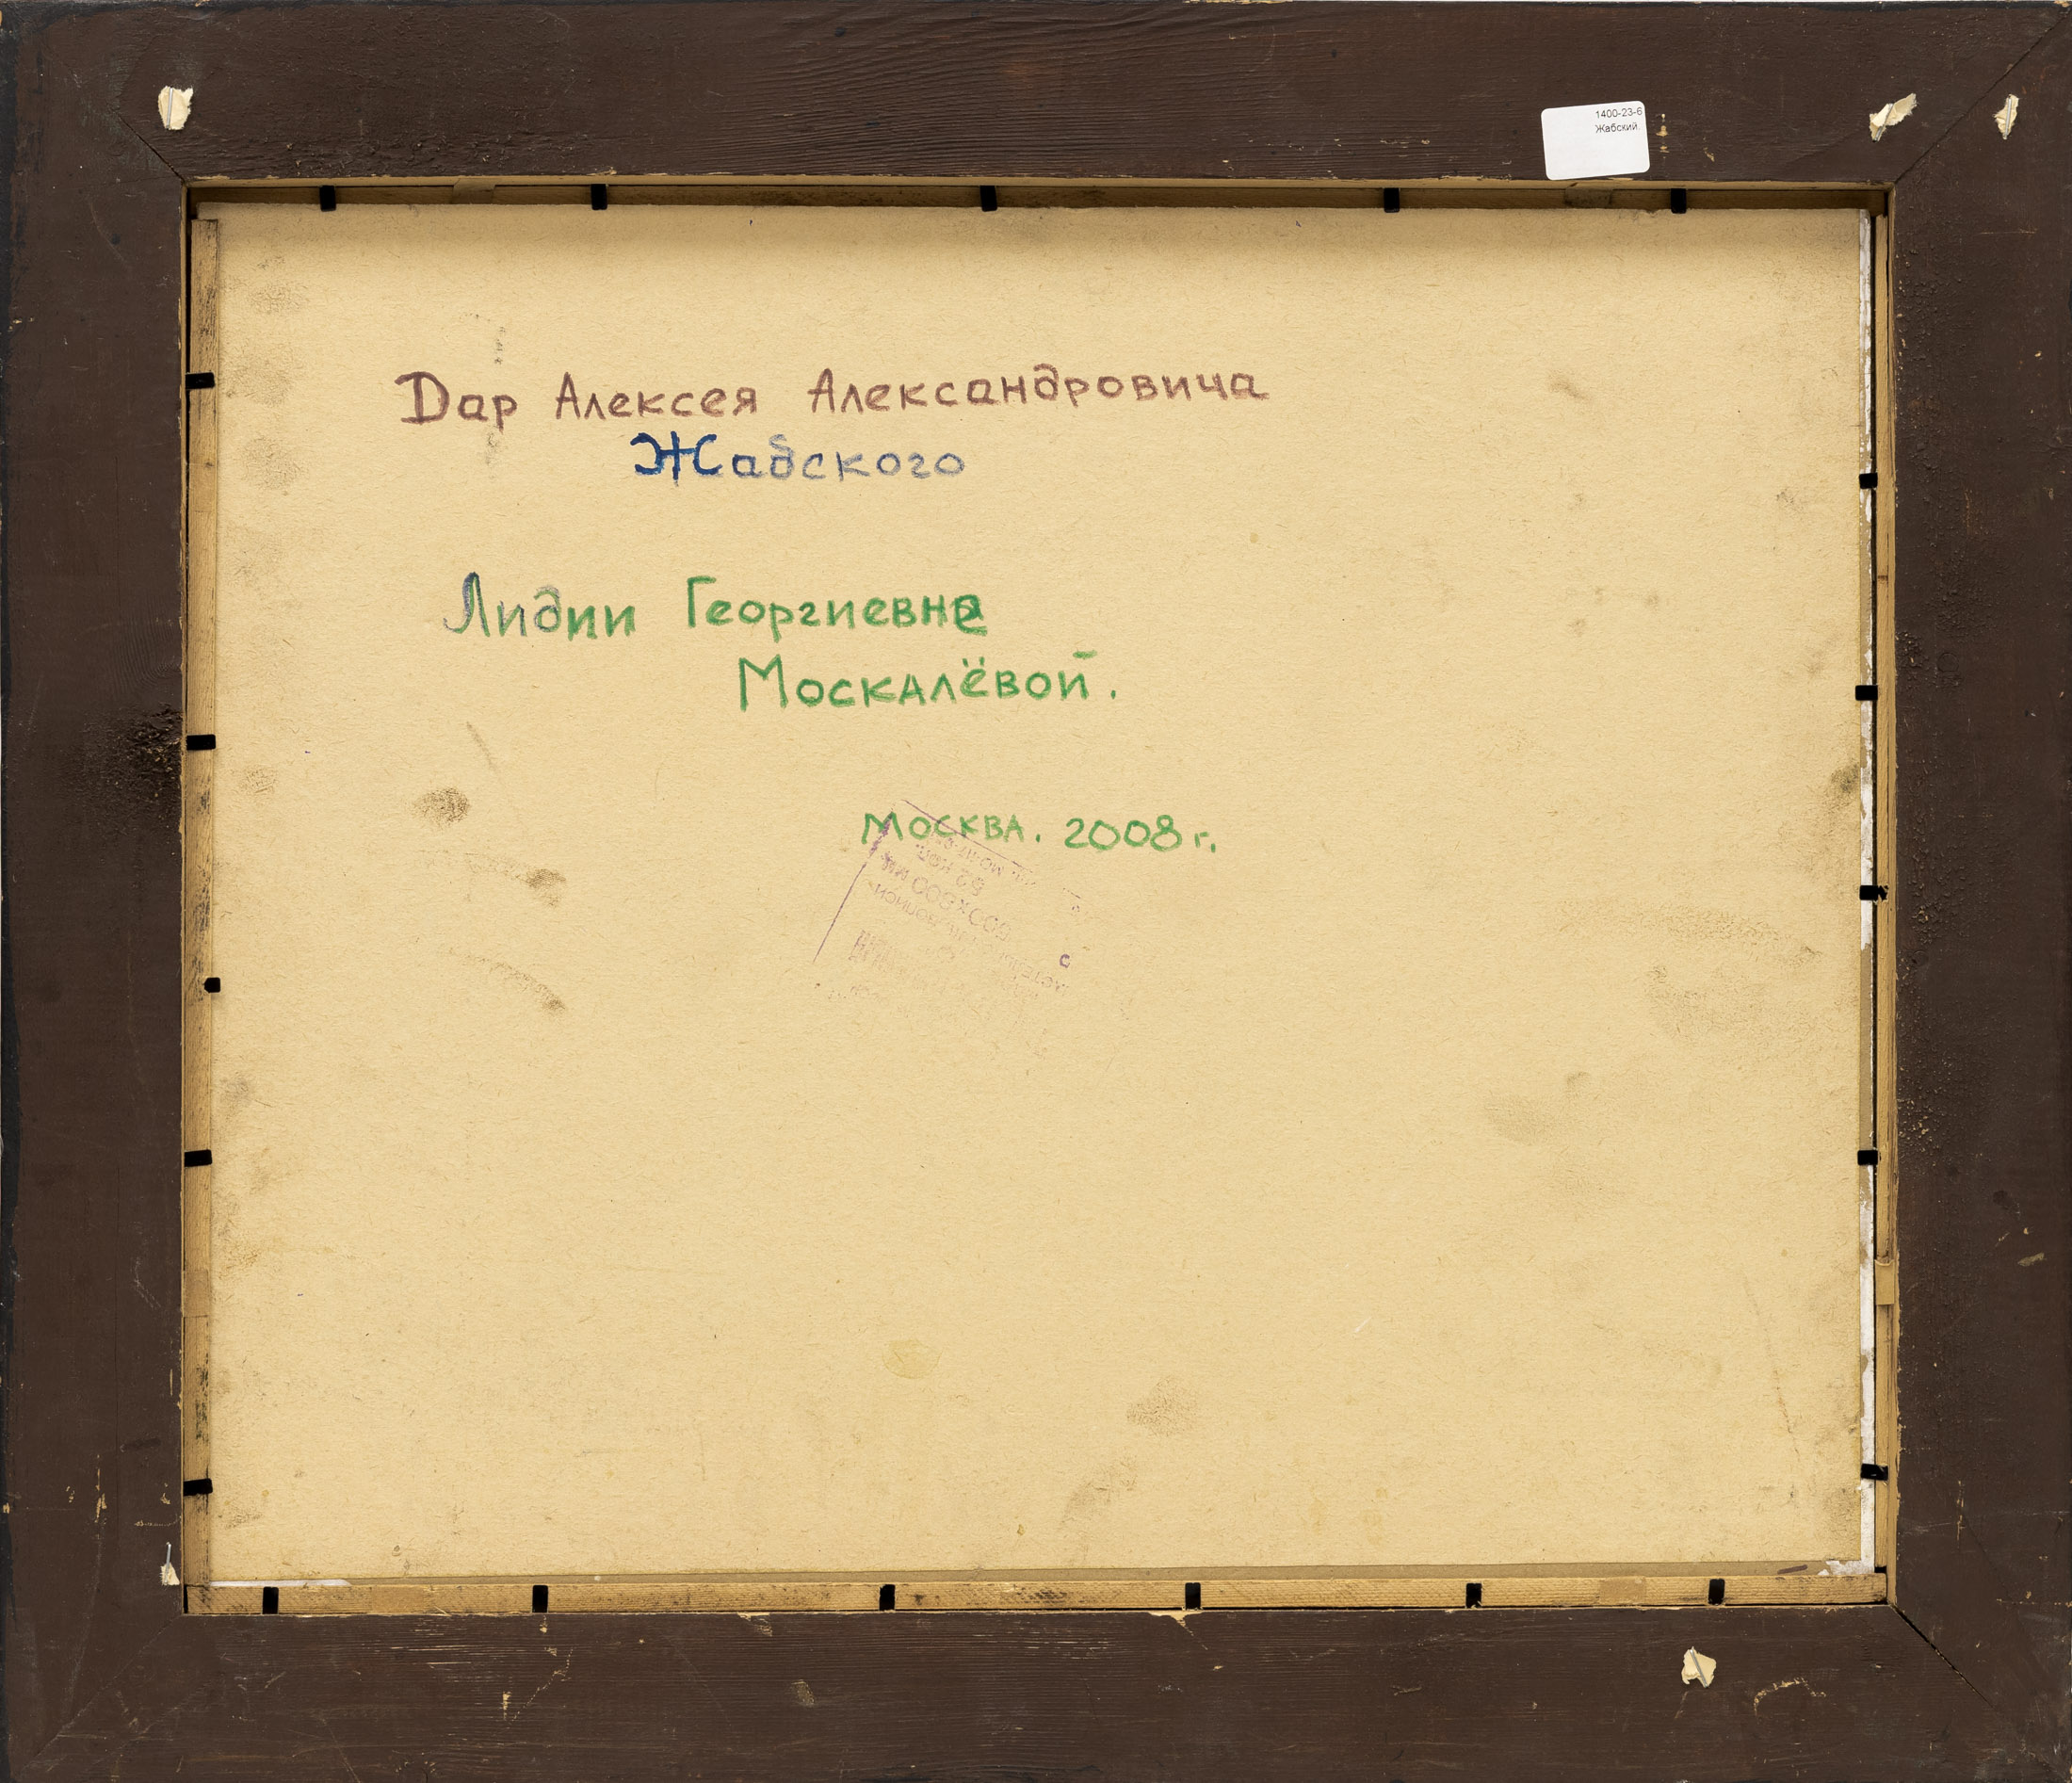 1400-23-6
Жабский
Дар Алексея Александровича
Жабского
Лидии Георгиевне
Москалёвой.
Москва. 2008 г.
600×800 мм